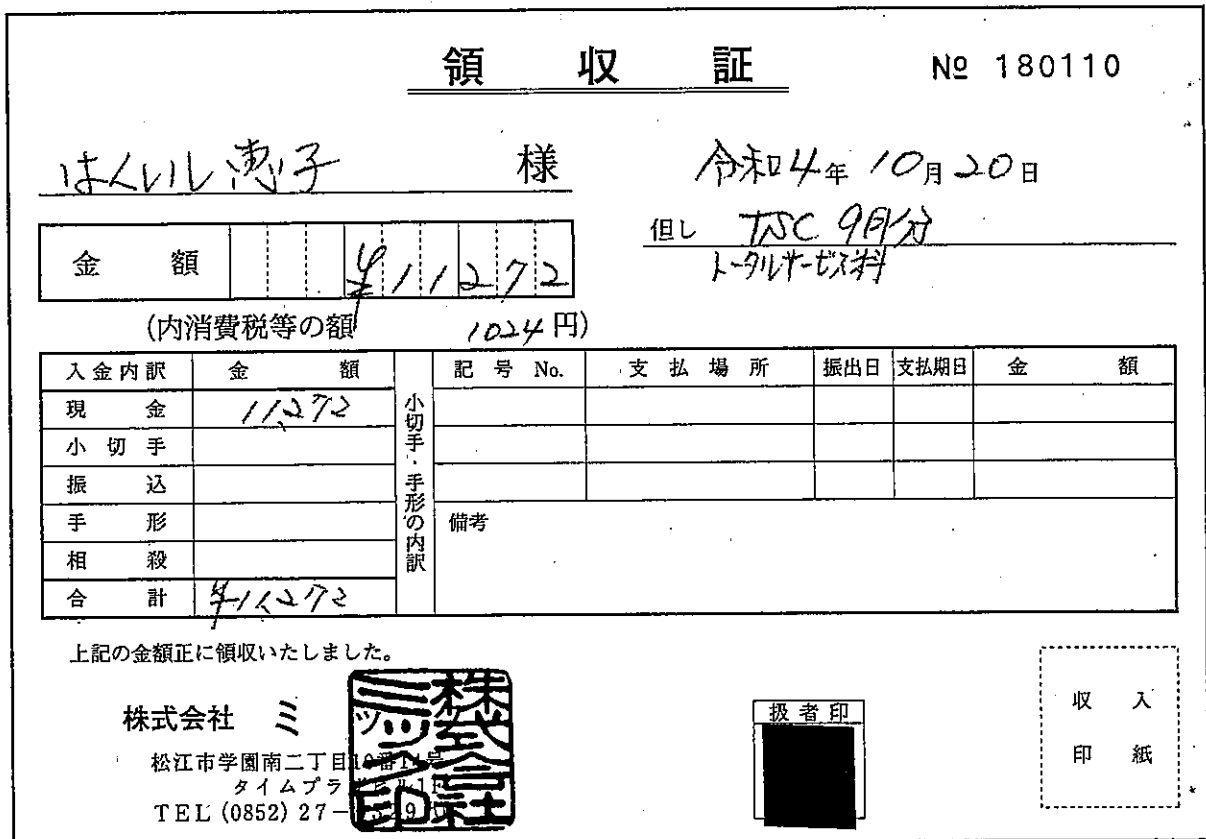 領収証
№ 180110
はくいし恵子 様
令和4年10月20日
金額 ¥11272
但し TSC 9月分
トータルサービス料
(内消費税等の額 1024円)
入金内訳 金額
現金 11,272
小切手
振込
手形
相殺
合計 ¥11,272
小切手・手形の内訳
記号No. 支払場所 振出日 支払期日 金額
備考
上記の金額正に領収いたしました。
株式会社 ミツ
松江市学園南二丁目10番14号
タイムプラ
TEL (0852) 27-
扱者印
収入
印紙